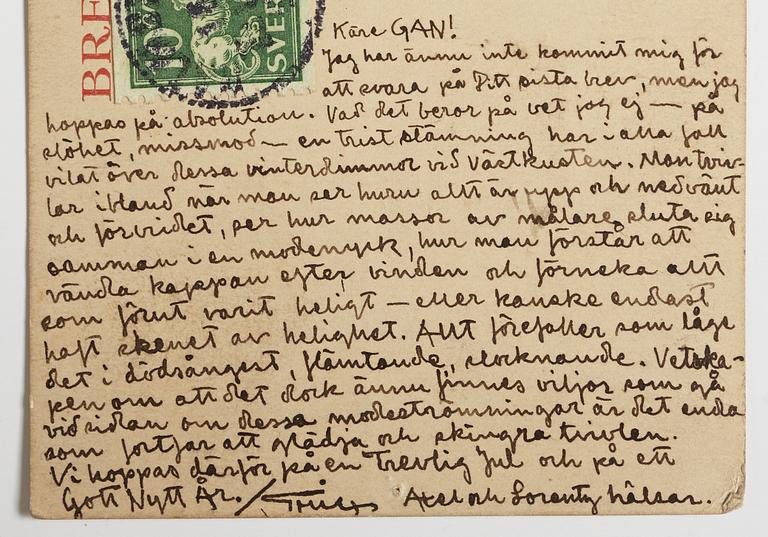 BRE
10
SVER
Käre GAN!
Jag har ännu inte kommit mig för
att svara på Ditt sista brev, men jag
hoppas på absolution. Vad det beror på vet jag ej — på
slöhet, missmod — en trist stämning har i alla fall
vilat över dessa vinterdimmor vid Västkusten. Man tviv-
lar ibland när man ser huru allt är upp och nedvänt
och förvridet, ser hur massor av målare sluta sig
samman i en modenyck, hur man förstår att
vända kappan efter vinden och förneka allt
som förut varit heligt — eller kanske endast
haft skenet av helighet. Allt förefaller som låge
det i dödsångest, flämtande, slocknande. Vetska-
pen om att det dock ännu finnes viljor som gå
vid sidan om dessa modeströmningar är det enda
som fortfar att glädja och skingra tvivlen.
Vi hoppas därför på en Trevlig Jul och på ett
Gott Nytt År. / Axel och Lorentz hälsar.